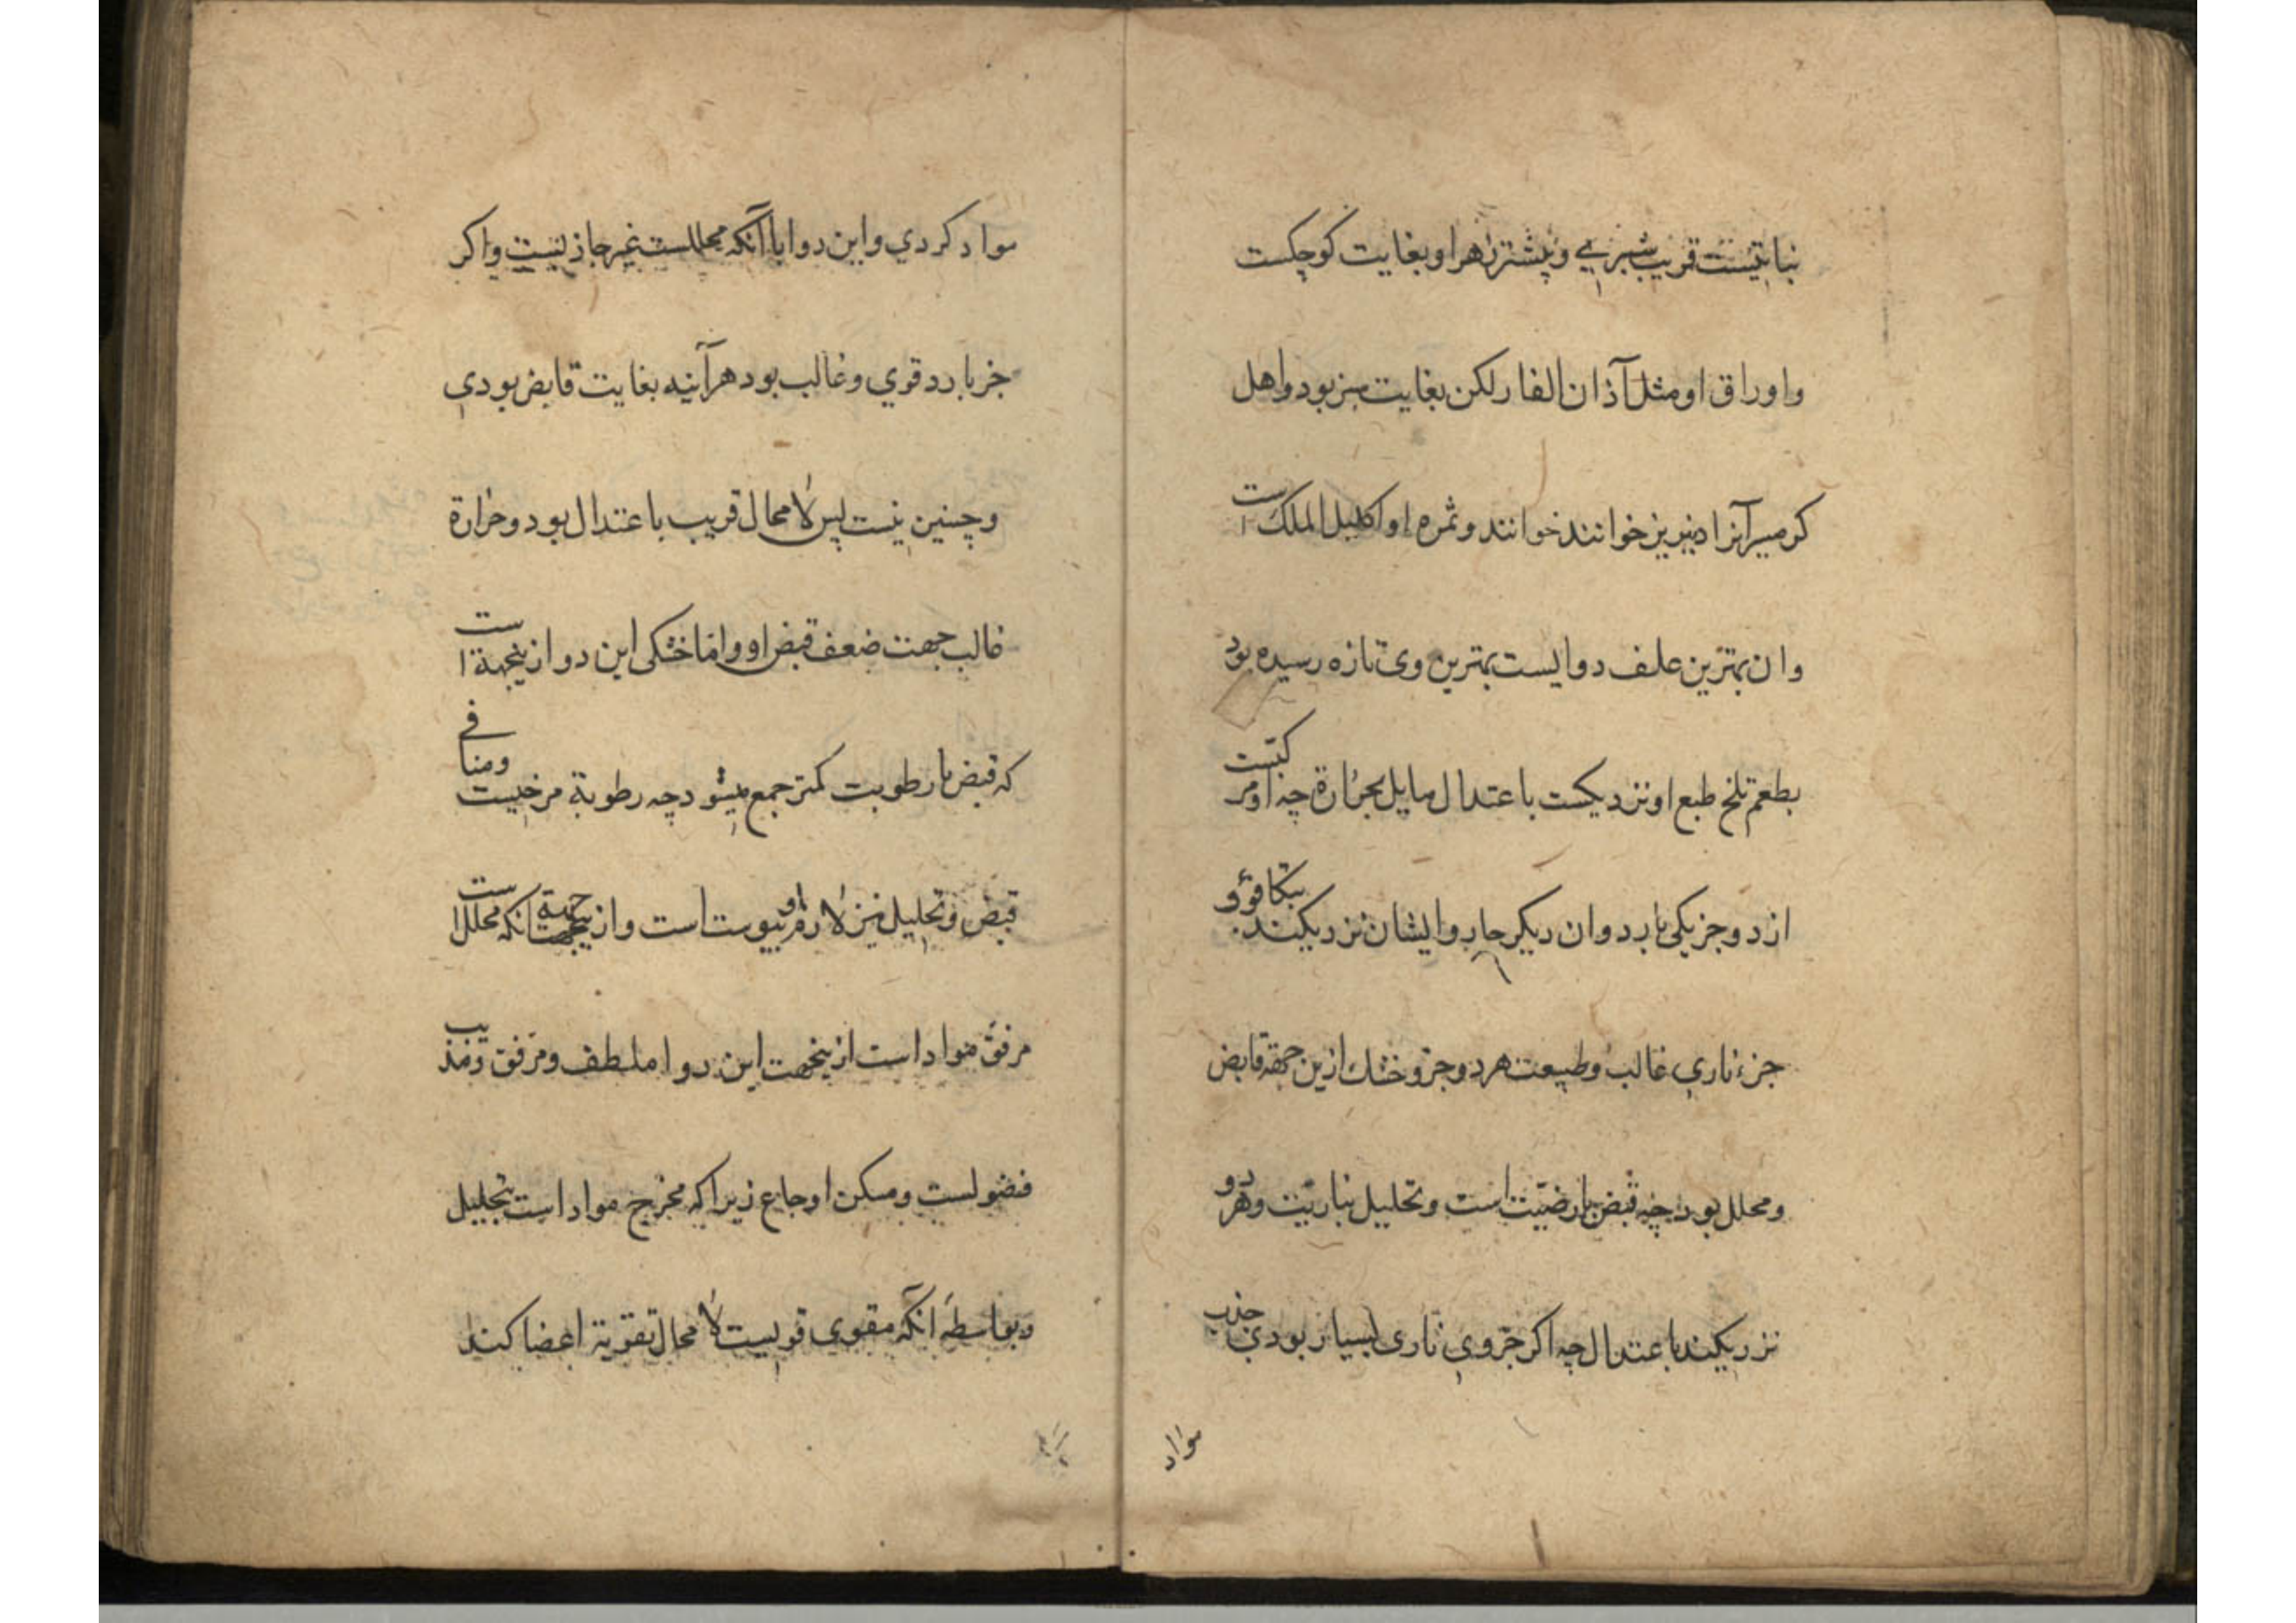 نباتیست قریب شبری و بیشتر زهر او بغایت کوچکست
و اوراق او مثل آذان الفار لکن بغایت سبز بود و اهل
کرمسیر آنرا خوانند خوانند و ثمره او اکلیل الملک است
و ان بهترین علف دوایست بهترین وی تازه رسیده بود
بطعم تلخ طبع او نزدیکست باعتدال مایل بحرارة چه او مرکبست
از دو جز یکی بارد و ان دیکر حار و ایشان نزدیکند بتکافؤ و
جزء ناري غالب و طبیعت هر دو جزو خشک ازین جهة قابض
و محلل بود چه قبض بارضیّت است و تحلیل بناریّت و هر دو
نزدیکند باعتدال چه اکر جزوي ناری بسیار بودي جذب
مواد
مواد کردي و این دوا باآنکه محللست غیر جاذبنیست و اکر
جز بارد قوي و غالب بود هرآینه بغایت قابض بودي
و چنین نیست پس لا محال قریب باعتدال بود و حرارة
غالب جهت ضعف قبض او و اما خشکی این دوا زینجهة است
که قبض با رطوبت کمتر جمع میشود چه رطوبة مرخیست و منافی
قبض و تحلیل نیز لازم او یبوست است و از جهة انکه محلل است
مرقق مواد است ازینجهت این دوا ملطف و مرقق و مذیب
فضولست و مسکن اوجاع زیرا که مخرج مواد است بتحلیل
و بواسطه آنکه مقوی قویست لا محال تقویة اعضا کند